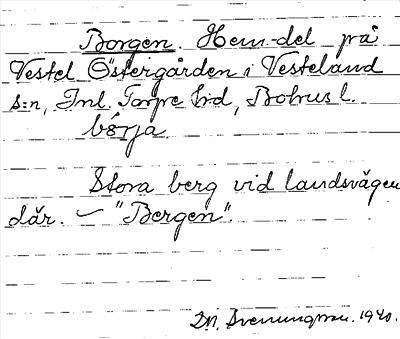 Borgen. Hem-del på
Vestel Östergården i Vesteland
s:n, Inl. Torpe hrd, Bohus l.
bö̀rja
Stora berg vid landsvägen
där. — "Bergen".
D.N. Svenungsson. 1940.